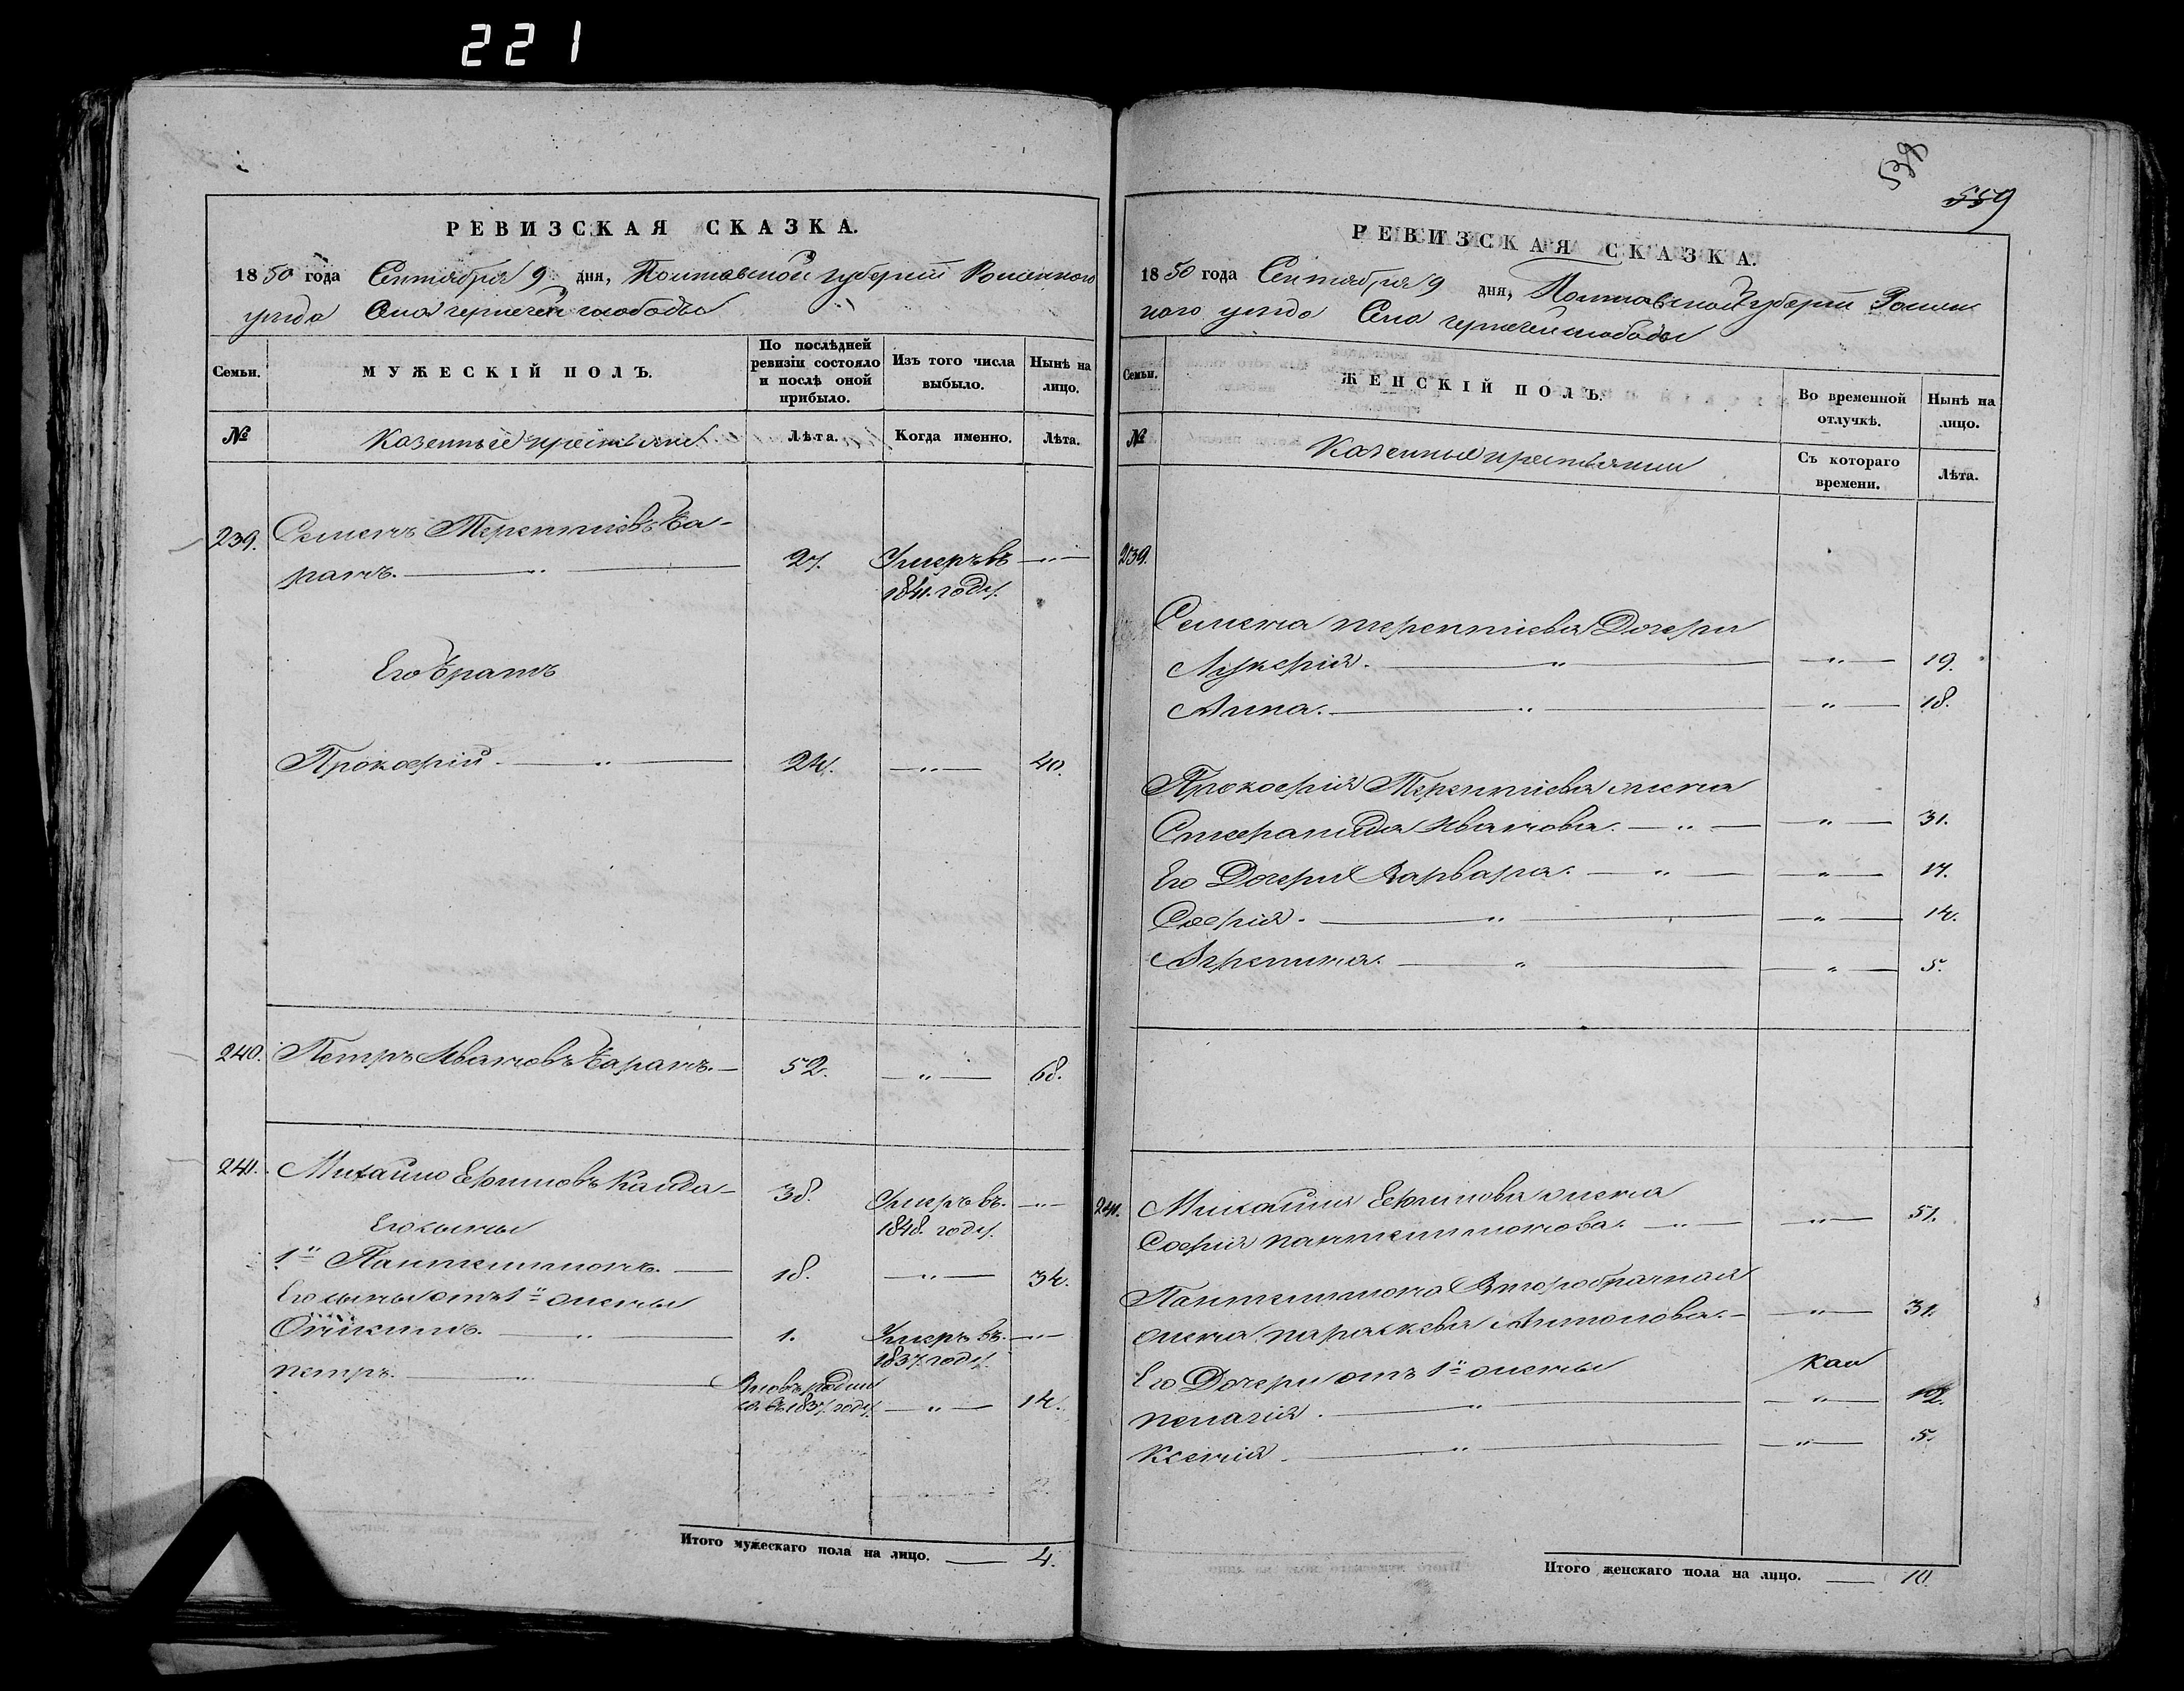 221
РЕВИЗСКАЯ СКАЗКА.
1850 года Сентября 9 дня, Полтавской губерніи Роменского
уезда Села чернечей слободы
Семьи.
МУЖЕСКІЙ ПОЛЪ.
По послѣдней ревизіи состояло и послѣ оной прибыло.
Изъ того числа выбыло.
Нынѣ на лицо.
№
Казенные крестьяне
Лѣта.
Когда именно.
Лѣта.
239. Семенъ Терентиевъ Ба-
ранъ. — " — 27. Умеръ въ — " —
1841. году.
Его братъ
Прокофій. — " — 24. — " — 40.
240. Петръ Ивановъ Баранъ. — 52. — " — 68.
241. Михайло Ефимовъ Кайда — 38. Умеръ въ — " —
1848. году.
Его сыны
1й Пантелимонъ. — 18. — " — 34.
Его сыны отъ 1й жены
— " — 1. Умеръ въ — " —
1837. году.
петръ. — " — Вновь родил
ся въ 1837. году. — " — 14.
Итого мужескаго пола на лицо. — 4.
538
559
РЕВИЗСКАЯ СКАЗКА.
1850 года Сентября 9 дня, Полтавской губерніи Ромен
ского уезда Села чернечей слободы
Семьи.
ЖЕНСКІЙ ПОЛЪ.
Во временной отлучкѣ.
Нынѣ на лицо.
№
Казенные крестьянки
Съ котораго времени.
Лѣта.
239.
Семена терентиева Дочери
Лукерія. — " — — " — 19.
Анна. — " — — " — 18.
Прокофія Терентиева жена
Степанида Иванова. — " — — " — 31.
Его Дочери Варвара. — " — — " — 17.
Софія. — " — — " — 14.
Агрепина. — " — — " — 5.
241. Михайла Ефимова жена
Софія пантелимонова. — " — — " — 51.
Пантелимона Второбрачная
жена параскева Антонова. — — " — 31.
Его Дочери отъ 1й жены
пелагія. — " — — " — 12.
Ксенія. — " — — " — 5.
Итого женскаго пола на лицо. — 10.